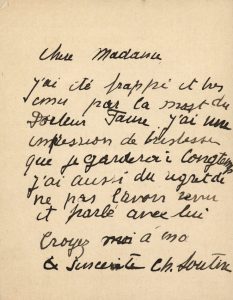 Chere Madame
j'ai été frappé et tres
ému par la mort du
Docteur Faure j'ai une
impression de tristesse
que je garderai longtemps
j'ai aussi du regret de
ne pas l'avoir revu
et parlé avec lui
Croyez moi à mo
sincerite Ch. Soutine